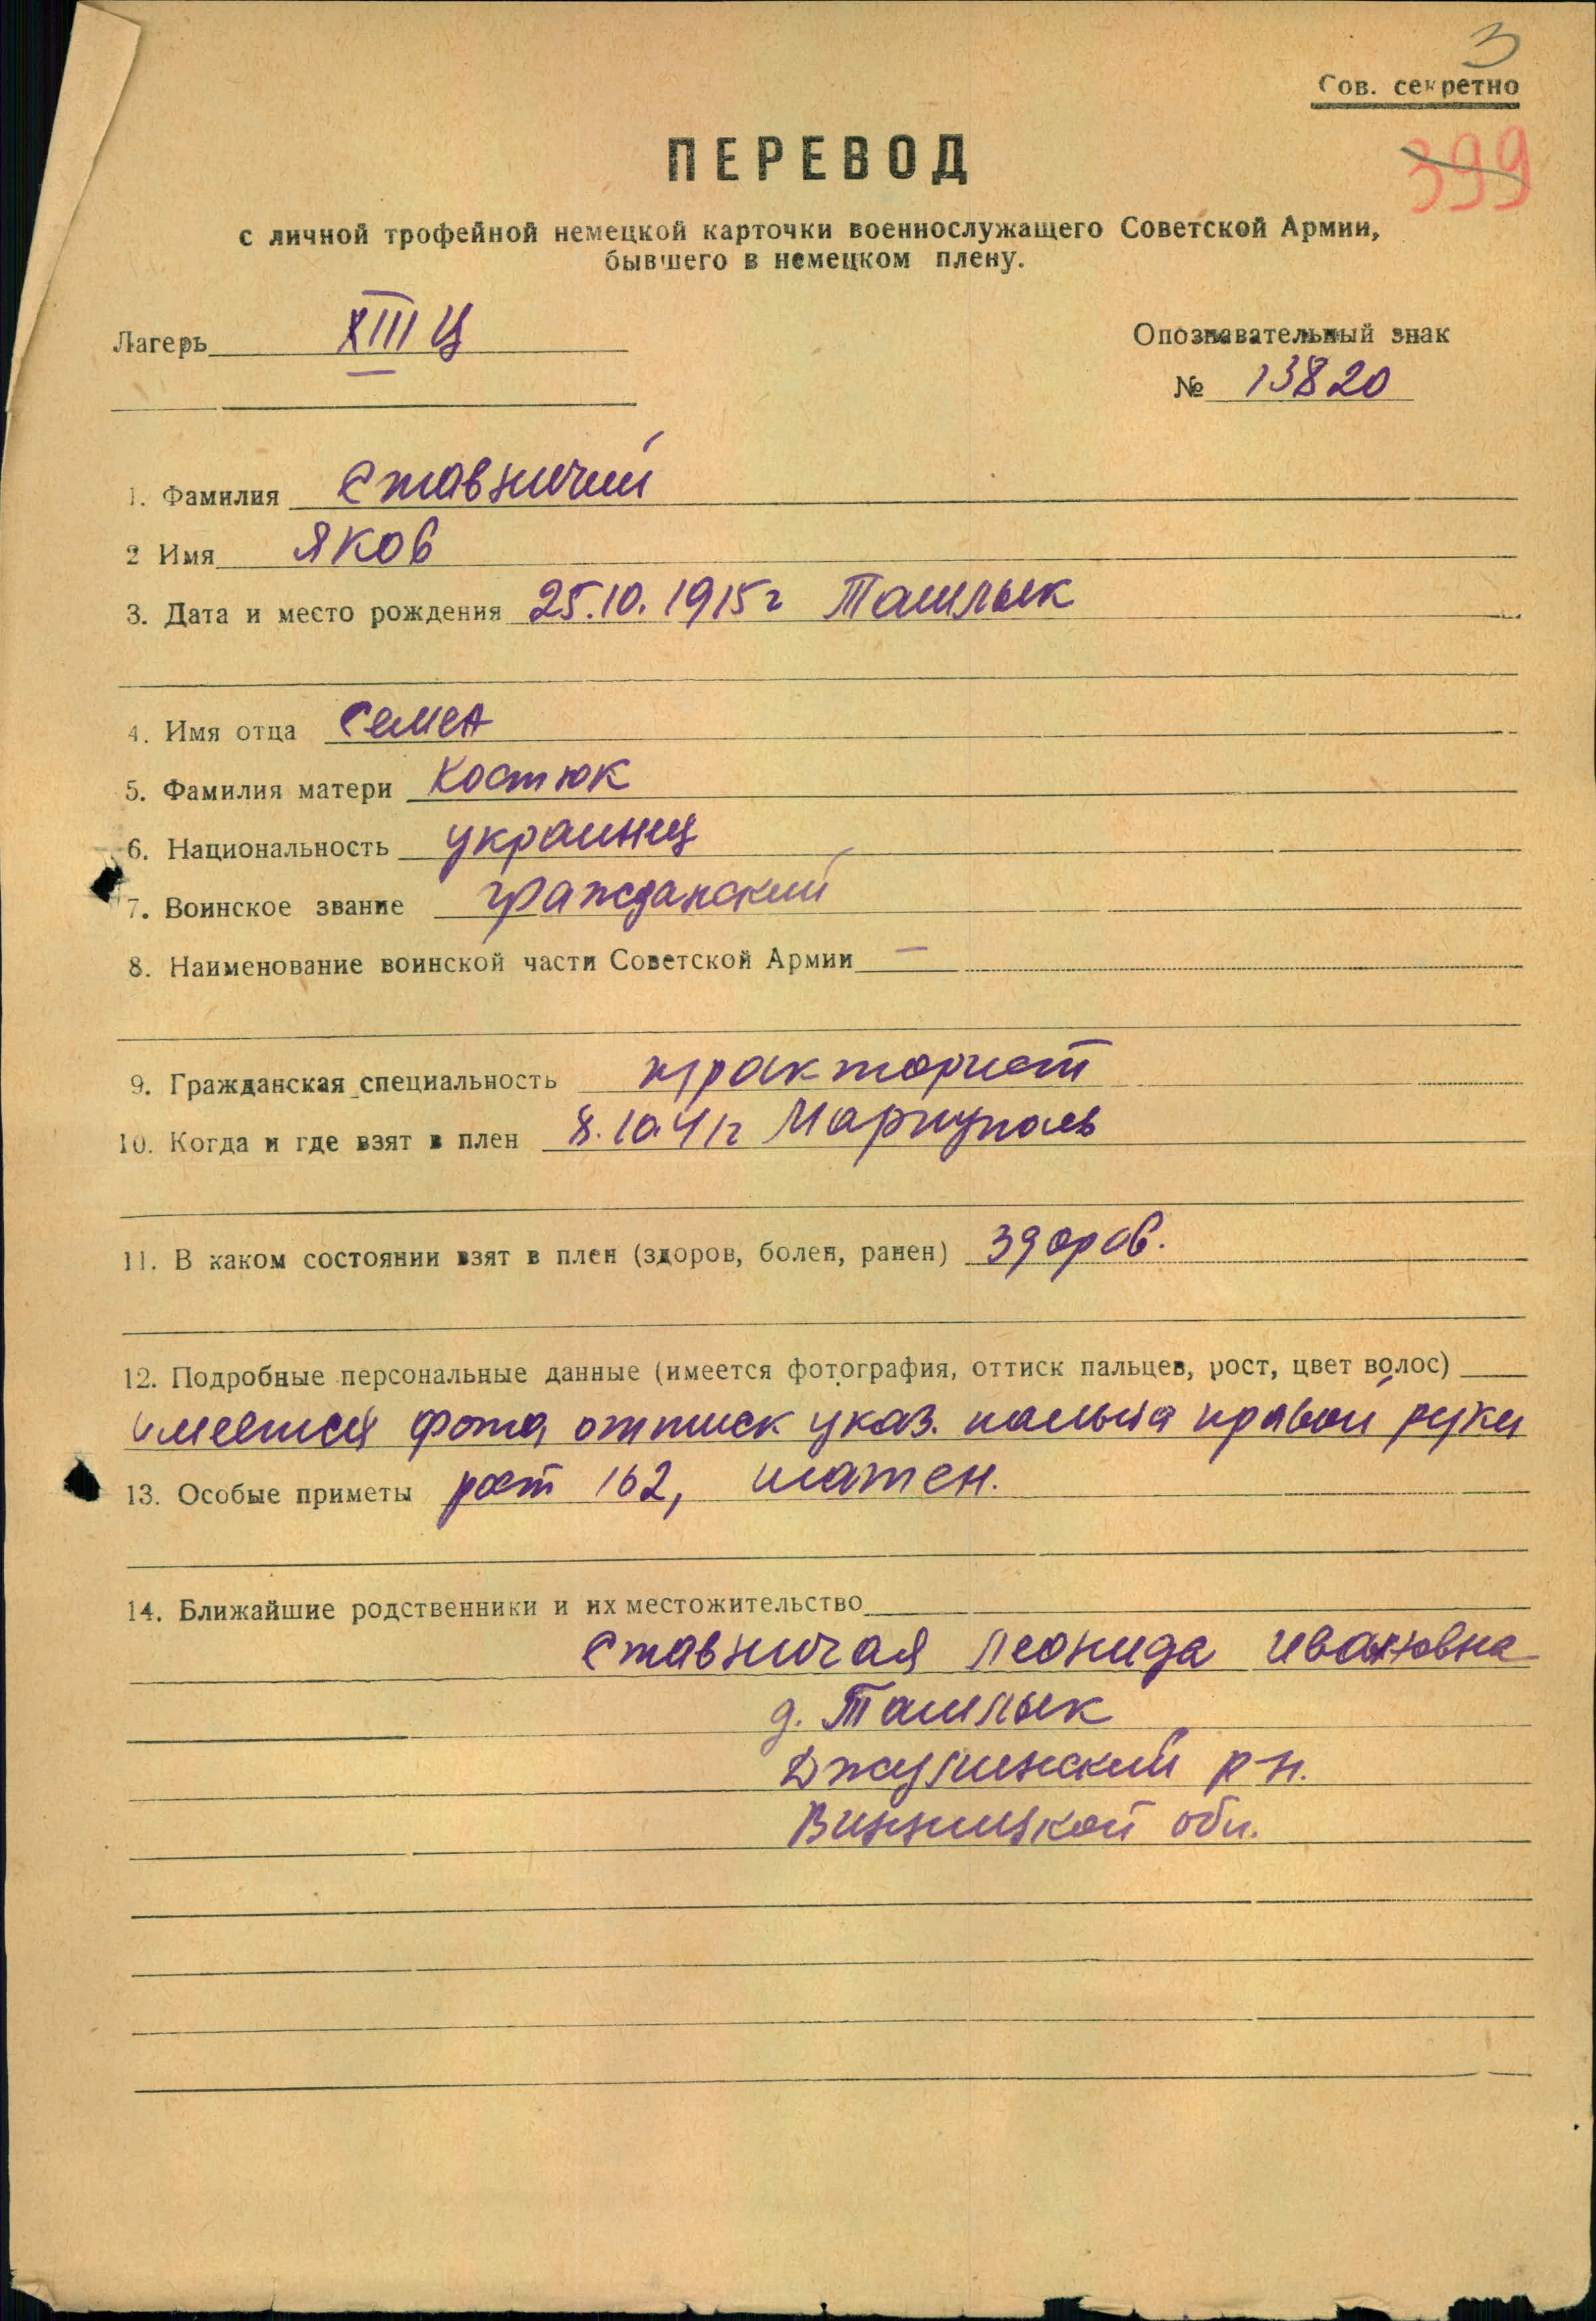 3
Сов. секретно
399
ПЕРЕВОД
с личной трофейной немецкой карточки военнослужащего Советской Армии,
бывшего в немецком плену.
Лагерь XIII Ц
Опознавательный знак
№ 13820
1. Фамилия Ставничий
2 Имя Яков
3. Дата и место рождения 25.10.1915г Ташлык
4. Имя отца Семен
5. Фамилия матери Костюк
6. Национальность украинец
7. Воинское звание гражданский
8. Наименование воинской части Советской Армии —
9. Гражданская специальность тракторист
10. Когда и где взят в плен 8.10.41г Мариуполь
11. В каком состоянии взят в плен (здоров, болен, ранен) здоров.
12. Подробные персональные данные (имеется фотография, оттиск пальцев, рост, цвет волос)
имеется фото, оттиск указ. пальца правой руки
13. Особые приметы рост 162, шатен.
14. Ближайшие родственники и их местожительство
Ставничая Леонида Ивановна
д. Ташлык
Джулинский р-н.
Винницкой обл.